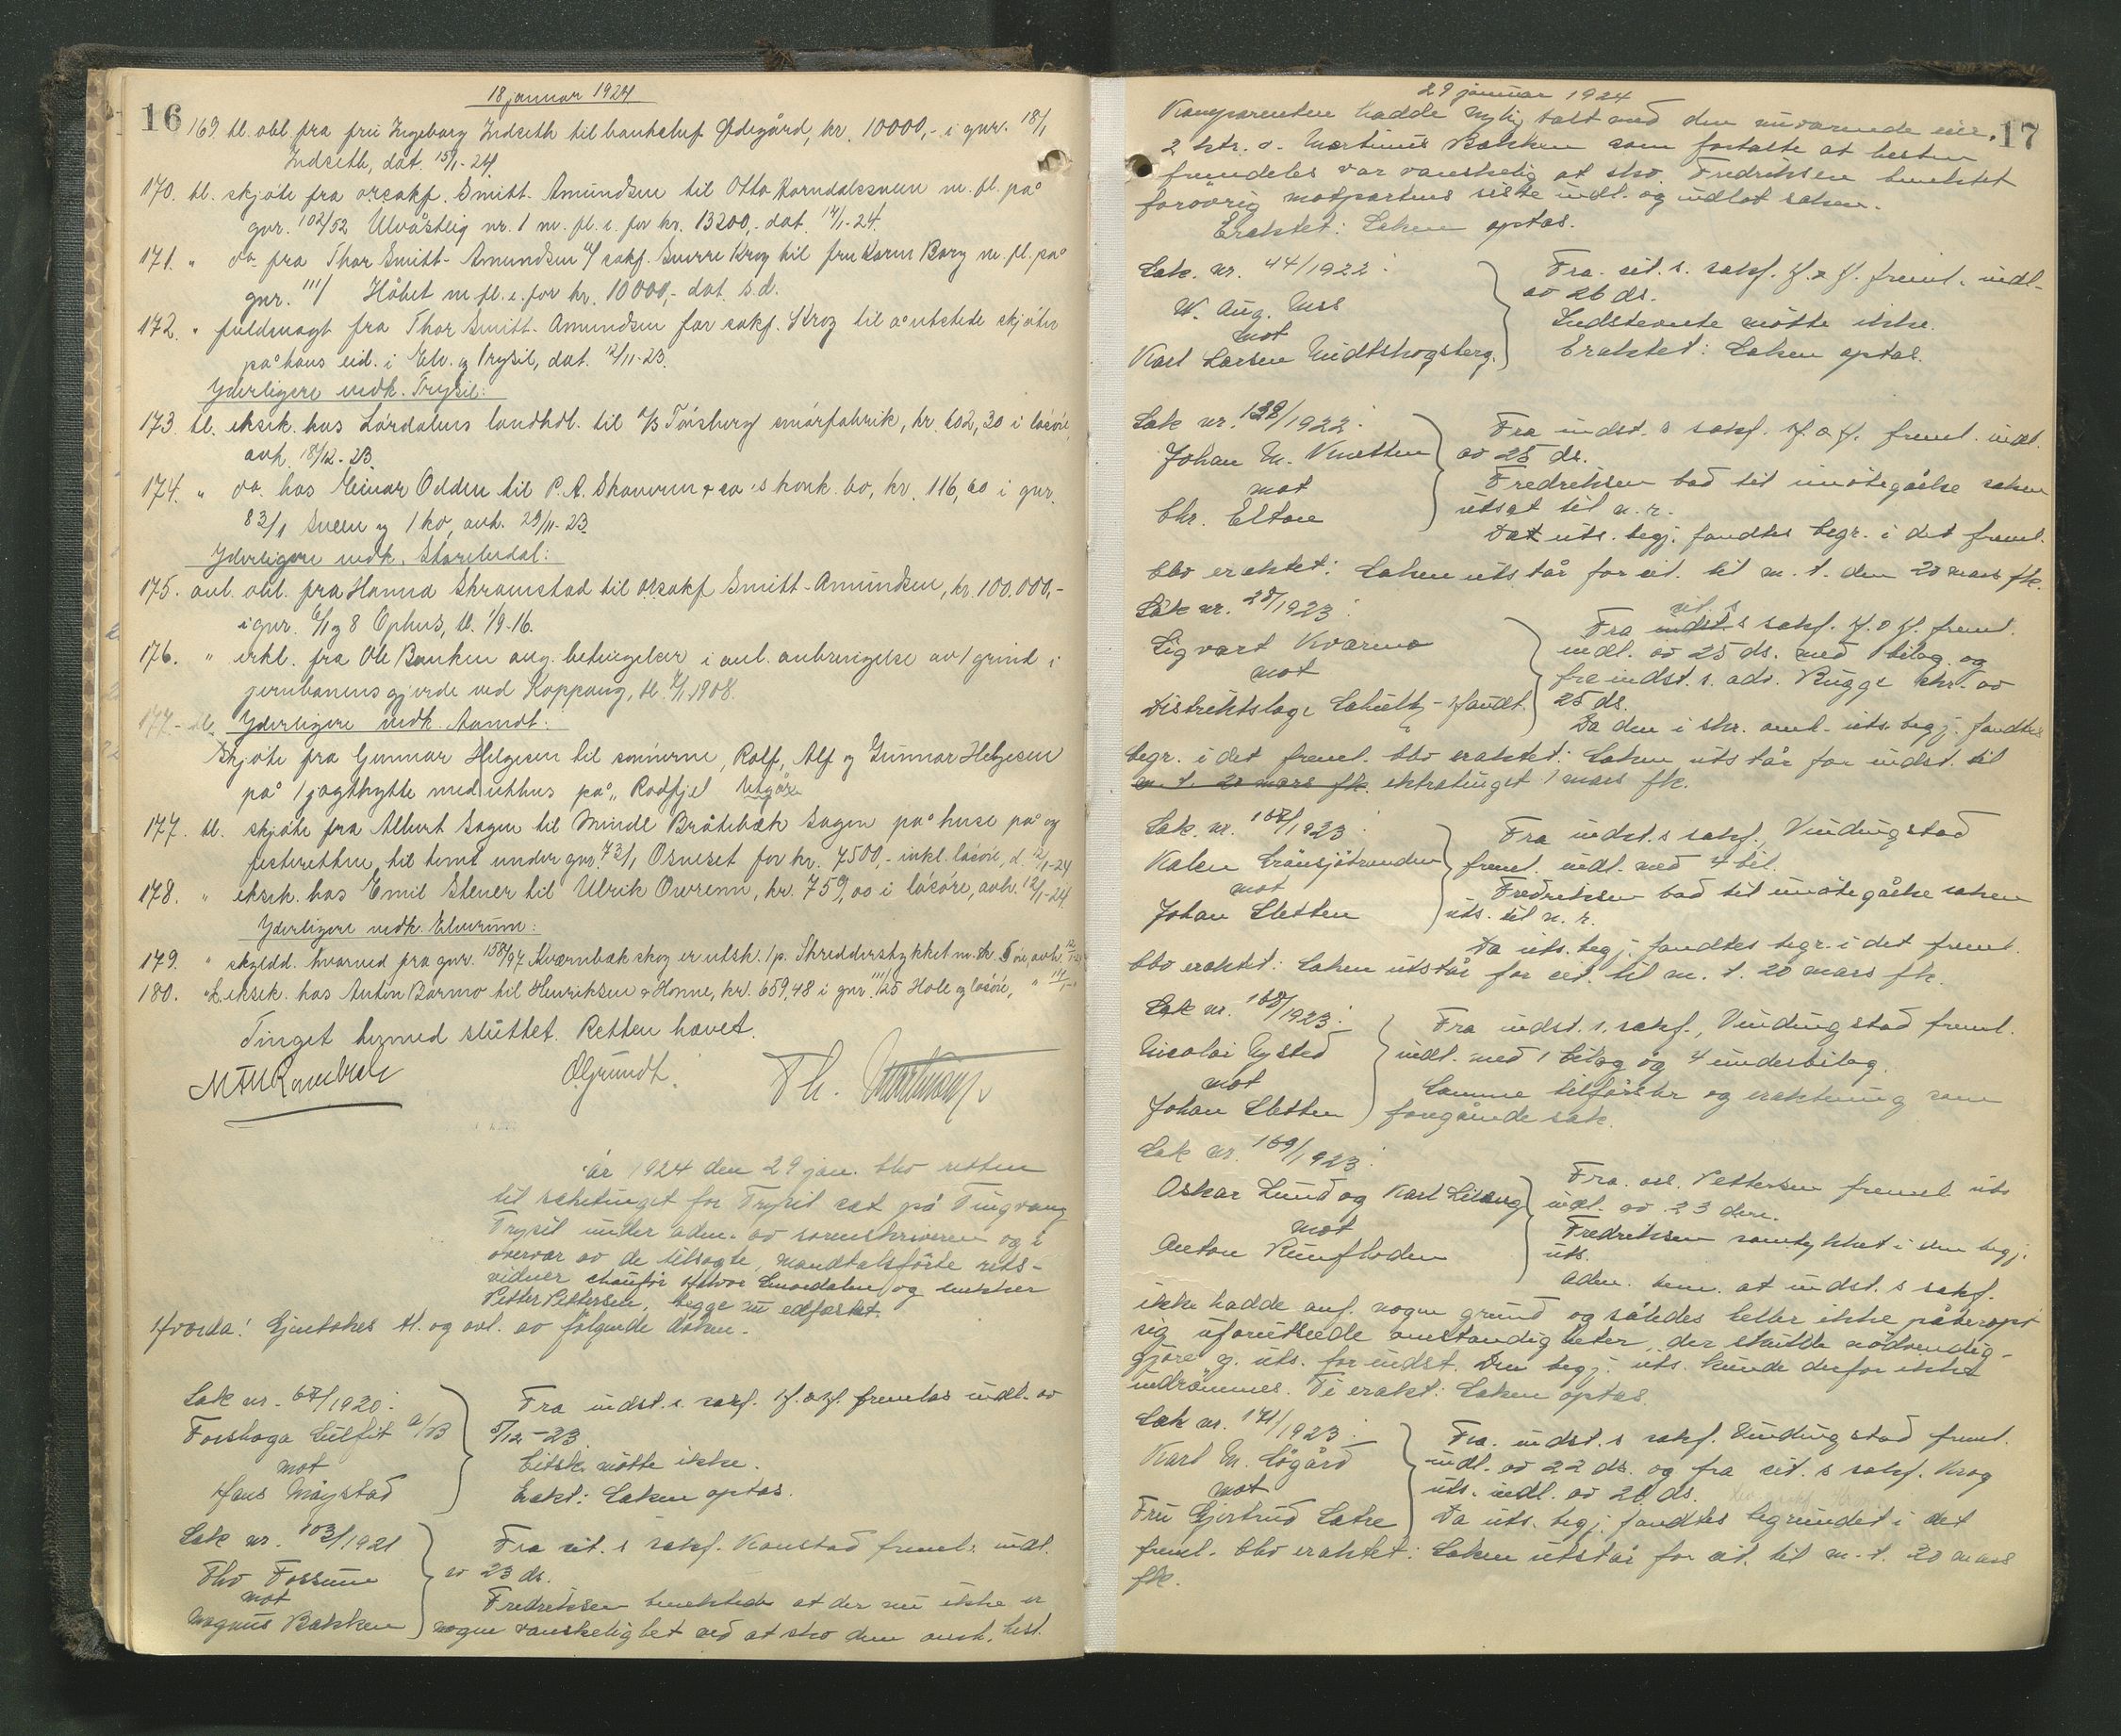 16
18 januar 1924
169. tl. obl. fra fru Ingeborg Indseth til bankchef Ødegård, kr. 10000,- i gnr. 18/1
Indseth, dat. 15/1-24.
170. tl. skjøte fra orsakf. Smitt-Amundsen til Otto Korndalssveen m. fl. på
gnr. 102/52 Ulvåsteig nr. 1 m. fl. e. for kr. 13200,- dat. 14/1-24.
171. " do fra Thor Smitt-Amundsen v/ sakf. Sverre Krog til fru Karen Borg m. fl. på
gnr. 111/ Håbet m. fl. e. for kr. 10000,- dat. s.d.
172. " fuldmagt fra Thor Smitt-Amundsen for sakf. Krog til å utstede skjøter
på hans eid. i Elv. og Trysil, dat. 12/11-23.
Yderligere vedk. Trysil:
173. tl. eksek. hos Lørdalens landhdl. til A/S Tønsberg smørfabrik, kr. 602,30 i løsøre,
avh. 18/12-23.
174. " do. hos Einar Odden til P. A. Skauvum & co's konk.bo, kr. 116,60 i gnr.
83/1 Sveen og 1 ko, avh. 29/11-23.
Yderligere vedk. Storelvdal:
175. avl. obl. fra Hanna Skramstad til orsakf Smitt-Amundsen, kr. 100.000,-
i gnr. 6/1 og 8 Ophus, tl. 1/9-16.
176. " erkl. fra Ole Bunken ang. betingelser i anl. anbringelse av 1 grind i
jernbanens gjerde ved Koppang, tl. 7/1 1908.
177 - tl. Yderligere vedk. Aamot:
Skjøte fra Gunnar Helgesen til sønnerne, Rolf, Alf og Gunnar Helgesen
på 1 jagthytte med uthus på "Rødfjel Utgår
177. tl. skjøte fra Albert Sagen til Mindle Bråtebæk Sagen på huse på og
festeretten til tomt under gnr. 73/1 Osneset for kr. 7500,- inkl. løsøre, d. 12/1-24
178. " eksek. hos Emil Stener til Ulrik Owrenn, kr. 759,00 i løsøre, avh. 12/1-24.
Yderligere vedk. Elverum:
179. " skyldd. hvorved fra gnr. 158/97 Kværnbæk skog er utsk. 1 p. Skreddersstykket m. sk. 5 øre, avh. 12/1-24
180. " eksek. hos Anton Barmo til Henriksen & Honne, kr. 659,48 i gnr. 111/125 Hole og løsøre, " 11/1-"
Tinget hermed sluttet. Retten hævet.
OGrundt. Th.
År 1924 den 29 jan. blev retten
til saketinget for Trysil sat på Tingvang
Trysil under adm. av sorenskriveren og i
overvær av de tilsagte, mandtalsførte rets-
vidner chauffør Halvor Smedalen og
Petter Pettersen, begge nu edfæstet.
Hvorda! Gjentokes tl. og avl. av følgende doken.
Sak nr. 67/1920:
Forshaga Sulfit A/B
mot
Hans Møystad
Fra indst. s. sakf. H. & H. fremlas indl. av
5/12-23.
Citstk. møtte ikke.
Erakt: Saken optas.
Sak nr. 103/1921
Thv Fossum
mot
Magnus Bakken
Fra cit. s sakf. Konstad freml. indl.
av 23 ds.
Fredriksen benektede at der nu ikke er
nogen vanskelighet ved at sko den omh. hest.
29 januar 1924
17
Komparenten hadde nylig talt med den nuværende eier,
2 ktr. v. Martinus Bakken som fortalte at hesten
fremdeles var vanskelig at sko. Fredriksen benektet
forøvrig motpartens siste indl. og indlot saken.
Eraktet: Saken optas.
Sak. nr. 44/1922:
W. Aug. Uss
mot
Karl Larsen Midtskogsberg.
Fra cit. s. sakf. H. & H. freml. indl.
av 26 ds.
Indstevnte møtte ikke.
Eraktet: Saken optas.
Sak nr. 138/1922:
Johan M. Knetten
mot
Chr. Eltoe
Fra indst. s sakf. H. & H. freml. indl.
av 25 ds.
Fredriksen bad til imøtegåelse saken
utsat til n. r.
Da uts. begj. fandtes begr. i det freml.
blev eraktet: Saken utstår for cit. til m. t. den 20 mars fk.
Sak nr. 28/1923:
Sigvart Kvarmo
mot
Distriktslage Sahultz-Handt.
Fra cit. s sakf. H. & H. freml.
indl. av 25 ds. med 1 bilag og
fra indst. s. adv. Rugge skr. av
25 ds.
Da den i skr. omh. uts. begj. fandtes
begr. i det freml. blev eraktet: Saken utstår for indst. til
m. t. 20 mars fk. ekstratinget 1 mars fk.
Sak. nr. 167/1923:
Kalen Grånsjøtrenden
mot
Johan Sletten
Fra indst. s sakf. Vindingstad
freml. indl. med 4 bil.
Fredriksen bad til imøtegåelse saken
uts. til n. r.
Da uts. begj. fandtes begr. i det freml.
blev eraktet: Saken utstår for cit. til m. t. 20 mars fk.
Sak nr. 168/1923:
Nicolai Nysted
mot
Johan Sletten
Fra indst. s. sakf. Vindingstad freml.
indl. med 1 bilag og 4 underbilag.
Samme tilførelse og eraktning som
foregående sak.
Sak nr. 169/1923:
Oskar Lund og Karl Liberg
mot
Anton Runfloden
Fra. orl. Pettersen freml. uts
indl. av 23 dem.
Fredriksen samtykket i den begj.
uts.
Adm. bem. at indst. s sakf.
ikke hadde anf. nogen grund og således heller ikke påberopt
sig uforutsede omstændigheter, der skulde nødvendig-
gjøre g. uts. for indst. Den begj. uts. kunde derfor ikke
indrømmes. Ti erakt: Saken optas.
Sak nr. 171/1923:
Karl M. Løgård
mot
Fru Gjertrud Sætre
Fra indst. s sakf. Vindingstad freml.
indl. av 22 ds. og fra cit. s sakf. Krog
uts. indl. av 26 ds.
Da uts. begj. fandtes begrundet i det
freml. blev eraktet: Saken utstår for cit. til m. t. 20 mars
fk.